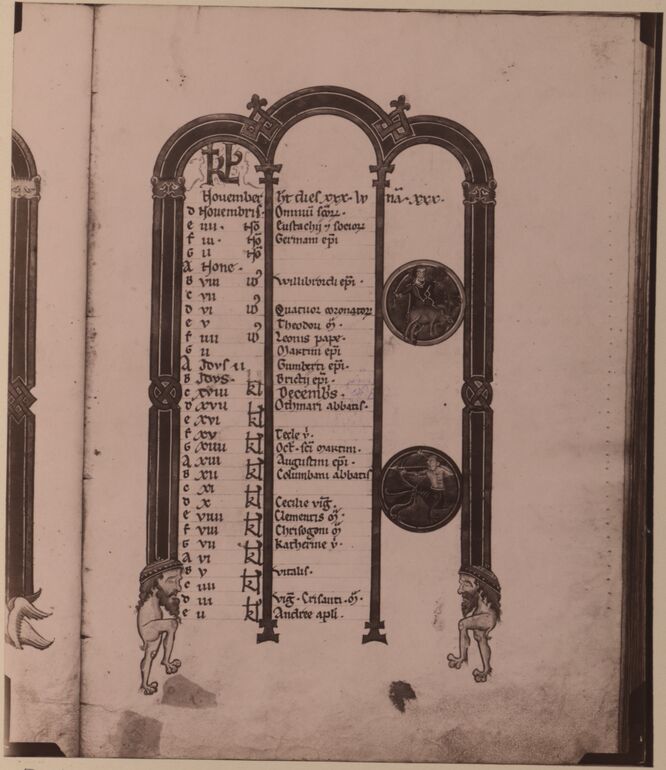 KL
November ht dies xxx. lv na. xxx.
d Novembris. Omniū scōr.
e iiii. Nō Eustachij 7 socior
f iii. Nō Germani epi
g ii Nō
A None.
b viii id Willibrordi epi.
c vii
d vi id Quatuor coronator
e v id Theodori m̄.
f iiii id Leonis pape.
g ii Martini epi
A Idus ii Gumberti epi.
b Idus. Brictij epi.
c xviii kl Decembs.
d xvii kl Othmari abbatis.
e xvi kl
f xv kl Tecle v̄.
g xiiii kl Oct. sci Martini.
A xiii kl Augustini epi.
b xii kl Columbani abbatis
c xi kl
d x kl Cecilie virḡ.
e viiii kl Clementis m̄.
f viii kl Chrisogoni m̄
g vii kl Katherine v̄.
A vi kl
b v kl Vitalis.
c iiii kl
d iii kl Virḡ. Crisanti. m̄.
e ii kl Andree apli.